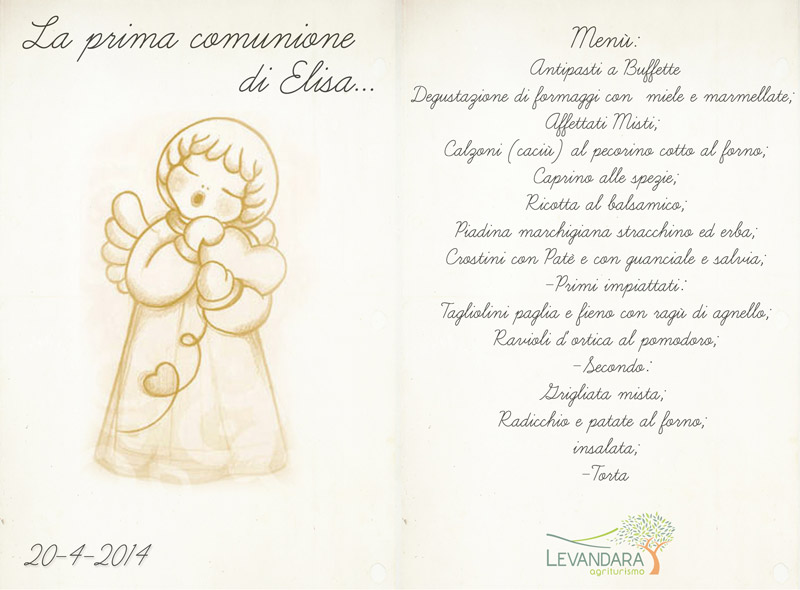 La prima comunione
di Elisa...
20-4-2014
Menù:
Antipasti a Buffette
Degustazione di formaggi con miele e marmellate;
Affettati Misti;
Calzoni (caciù) al pecorino cotto al forno;
Caprino alle spezie;
Ricotta al balsamico;
Piadina marchigiana stracchino ed erba;
Crostini con Patê e con guanciale e salvia;
-Primi impiattati:
Tagliolini paglia e fieno con ragù di agnello;
Ravioli d'ortica al pomodoro;
-Secondo:
Grigliata mista;
Radicchio e patate al forno;
insalata;
-Torta
LEVANDARA
agriturismo